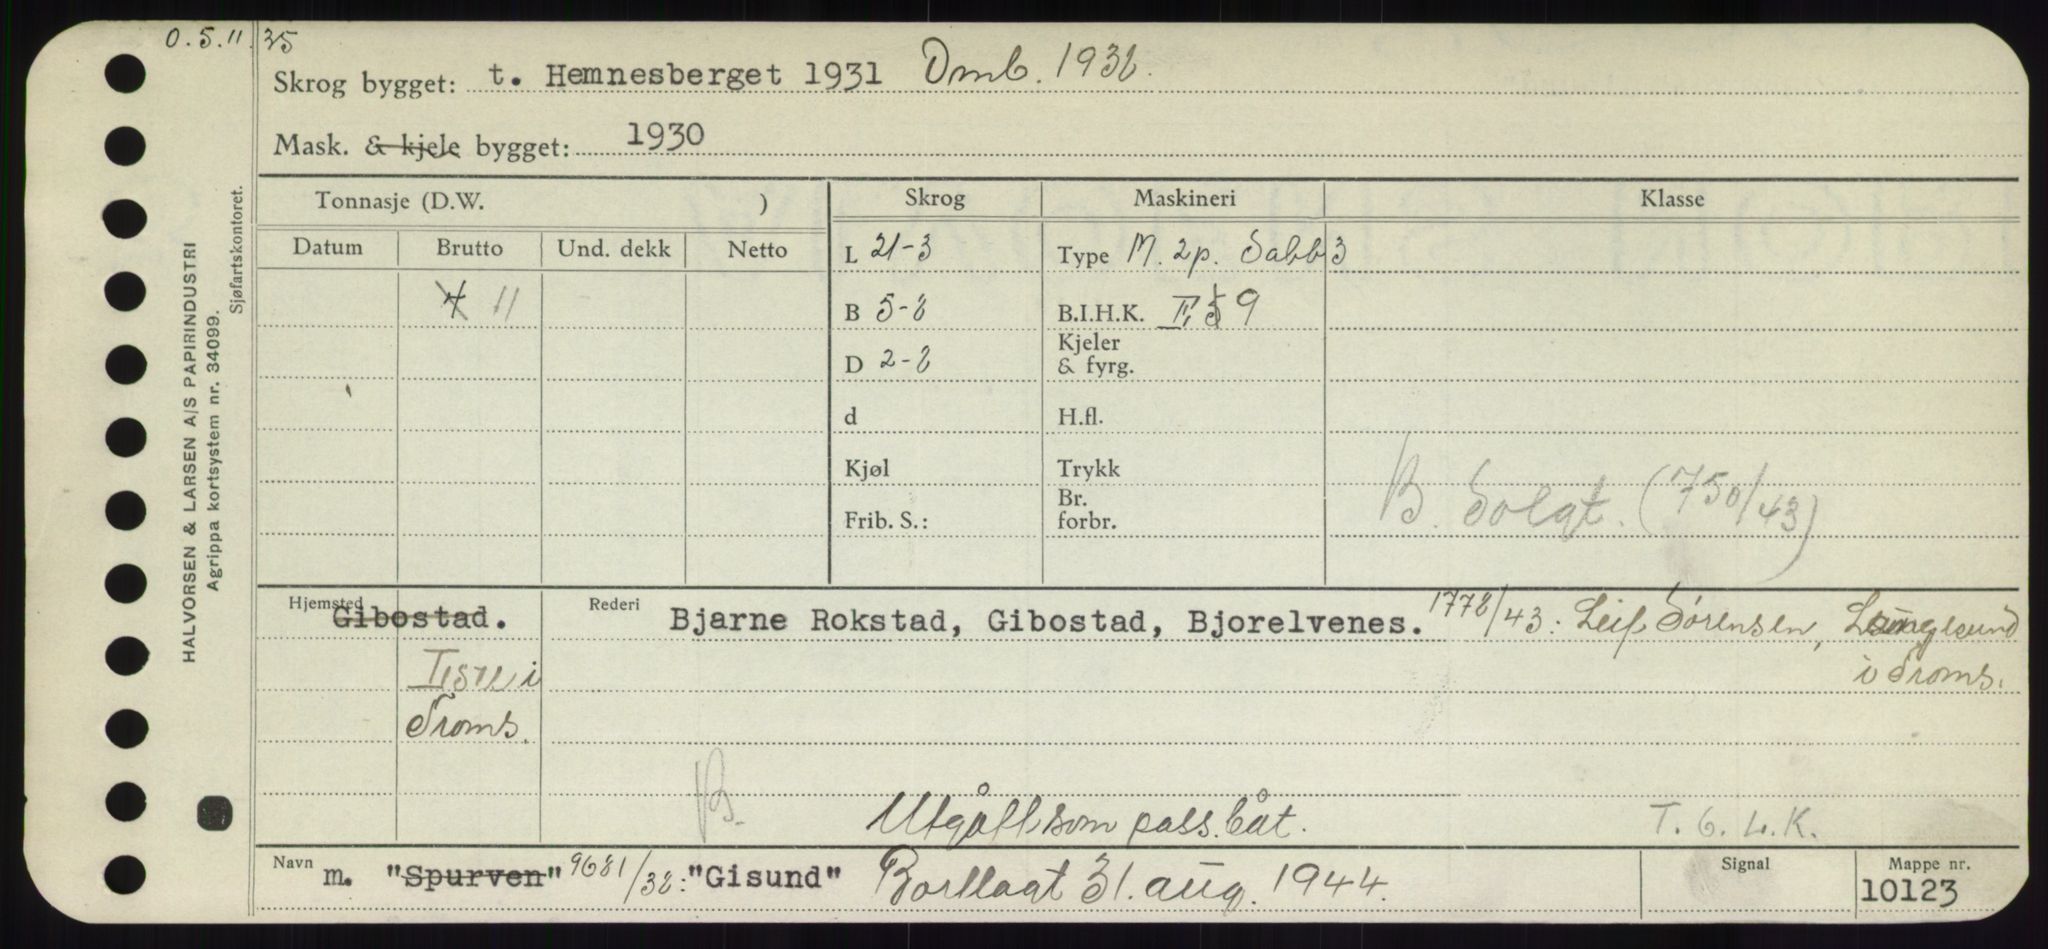 O. 5. 11. 35
Skrog bygget: t. Hemnesberget 1931 Omb. 1938.
Mask. & kjele bygget: 1930
Tonnasje (D.W. ) Skrog Maskineri Klasse
Datum Brutto Und. dekk Netto L 21-3 Type M. 2p. Sabb 3
11 B 5-8 B.I.H.K. 9
D 2-8 Kjeler & fyrg.
d H.fl.
Kjøl Trykk
Frib. S.: Br. forbr.
B. Solgt. (750/43)
Hjemsted Gibostad. Rederi Bjarne Rokstad, Gibostad, Bjorelvenes. 1778/43: Leif Sørensen,
i Troms.
i
Troms.
B.
Utgått som pass.båt.
T. G. L. K.
Navn m. "Spurven" 9681/38: "Gisund" Bortlagt 31. aug. 1944. Signal Mappe nr. 10123
HALVORSEN & LARSEN A/S PAPIRINDUSTRI
Agrippa kortsystem nr. 34099.
Sjøfartskontoret.